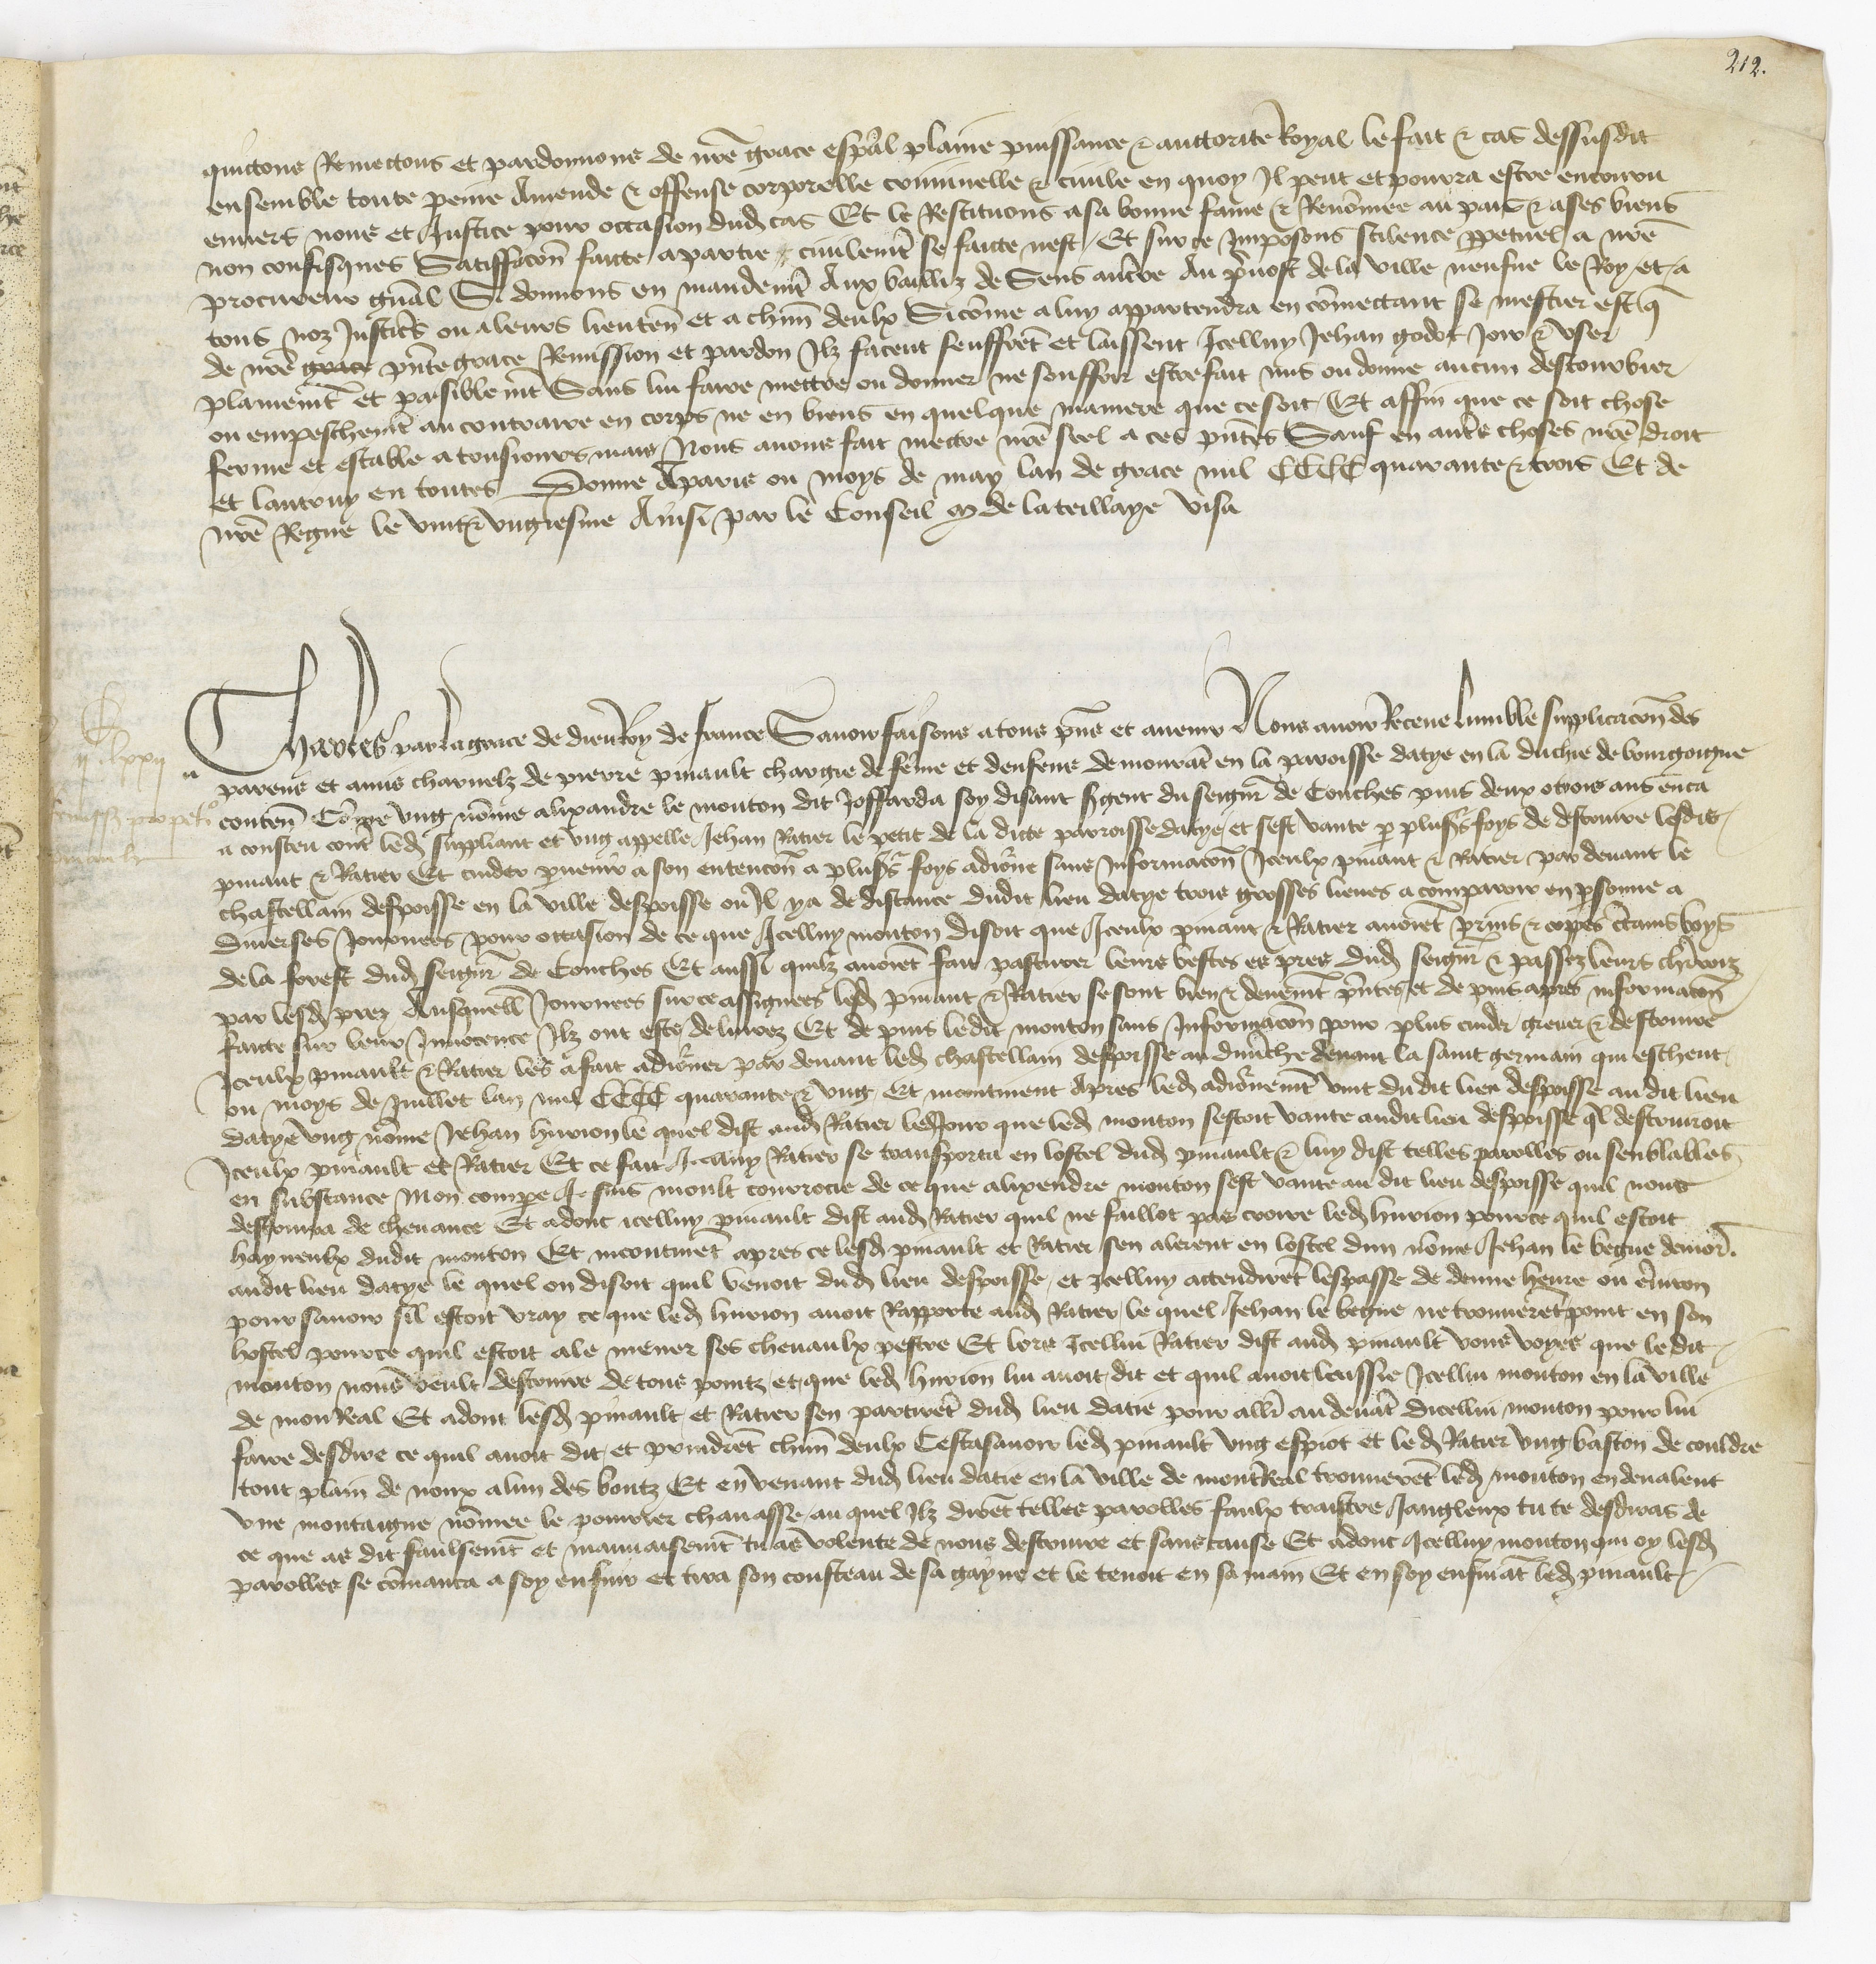 212.
quictons Remectons et pardonnons de nre grace espal plaine puissance & auctorite Royal le fait & cas dessusdit
ensemble toute peine Amende & offense corporelle criminelle & ciuile en quoy Il peut et pourra estre encouru
enuers nous et Justice pour occasion dud cas Et le Restituons a sa bonne fame & Renomee au pais & a ses biens
non confisques Satisffacon faicte a partie ciuilemt se faicte nest Et sur ce Imposons scilence ppetuel a nre
procureur gnal Si donnons en mandemt Aux bailliz de Sens aucerre Au puost de la ville neufue le Roy et a
tous noz Justicrs ou a leurs lieuten et a chun deulx Si come a luy appartendra en comectant se mestier est q
de nre grace pnte grace Remission et pardon Ilz facent seuffret et laissent Icelluy Jehan godot Joir & vser
plainemt et paisiblemt Sans lui faire mettre ou donner ne souffrir estre fait mis ou donne aucun destourbier
ou empeschemt au contraire en corps ne en biens en quelque maniere que ce soit Et affin que ce soit chose
ferme et estable a tousiours mais Nous auons fait mectre nre seel a ces pntes Sauf en autrs choses nre droit
et lautruy en toutes Donne Aparis ou moys de may lan de grace mil CCCC quarante & trois Et de
nre Regne le vint & vngiesme Ainsi par le Conseil M de la teillaye Visa
Charles par la grace de dieu Roy de france Sauoir faisons a tous pns et auenir Nous auoir Receue lumble supplicacon des
parens et amis charnelz de pierre pinault chargie de feme et denfens demourat en la paroisse datye en la duchie de bourgoigne
conten Come vng nome alixandre le mouton dit Joffarda soy disant sgent du seigneur de Conches puis deux ou trois ans enca
a conceu cont led suppliant et vng appelle Jehan Ratier le petit de la dicte parroisse datye et sest vante p plusrs foys de destruire lesdis
pinaut & Ratier Et cuider puenir a son entencon a plusrs foys adiorne sans Informacon Iceulx pinaut & Ratier par deuant le
chastellain despoisse en la ville despoisse ou Il ya de distance dudit lieu datye trois grosses lieues a comparoir en psonne a
diuerses Journees pour occasion de ce que Icelluy mouton disoit que Iceulx pinaut & Ratier auoiet prins & copes ctains boys
de la forest dud seigneur de Conches Et aussi quilz auoiet fait pasturer leurs bestes es pres dud seigneur & passez leurs charroiz
par lesd prez Ausquell Journees sur ce assignees led pinaut & Ratier se sont bien & deuemt pntes et de puis apres informacon
faicte sur leur Innocence Ilz ont este deliurez Et de puis ledit mouton sans Informacon pour plus cuider greuer & destruire
Iceulx pinault & Ratier les a fait adiorner par deuant led chastellain despoisse au dimenche deuant la saint germain qui escheut
ou moys de Juillet lan mil CCCC quarante & vng Et incontinent Apres led adiornemt vint du dit lieu despoisse au dit lieu
datye vng nome Jehan huvion le quel dist aud Ratier led Jour que led mouton sestoit vante audit lieu despoisse ql destruiroit
Iceulx pinault et Ratier Et ce fait Icelluy Ratier se transporta en lostel dud pinault & luy dist telles parolles ou senblables
en substance Mon compere Je suis moult courocie de ce que alixendre mouton sest vante au dit lieu despoisse quil nous
destruira de cheuance Et adonc icelluy pinault dist aud Ratier quil ne failloit pas croire led huvion pource quil estoit
hayneulx dudit mouton Et incontinet apres ce lesd pinault et Ratier sen alerent en lostel dun nome Jehan le begue demor
audit lieu datye le quel on disoit quil venoit dud lieu despoisse et icelluy actendiret lespasse de demie heure ou enuiron
pour sauoir sil estoit vray ce que led huvion auoit Rapporte aud Ratier le quel Jehan le begue ne trouueret point en son
hostel pource quil estoit ale mener ses cheuaulx pestre Et lors Icellui Ratier dist aud pinault vous voyes que le dit
mouton nous veult destruire de tous pointz et que led huvion lui auoit dit et quil auoit leissie Icellui mouton en la ville
de mon Real Et adont lesd pinault et Ratier sen partiret dud lieu datie pour aller au deuat dicellui mouton pour lui
faire desdire ce quil auoit dit et prindret chun deulx Cestasauoir led pinault vng espiot et le d Ratier vng baston de couldre
tout plain de noux a lun des boutz Et en venant dud lieu datie en la ville de mont Real trouueret led mouton en deualent
vne montaigne nomee le poirier chauasse au quel Ilz diret telles parolles faulx traistre Jangleux tu te desdiras de
ce que as dit faulsemt et mauuaisemt tu as volente de nous destruire et sans cause Et adont Icelluy mouton qui oy lesd
parolles se comanca a soy enfuir et tira son cousteau de sa gayne et le tenoit en sa main Et en soy enfuiat led pinault